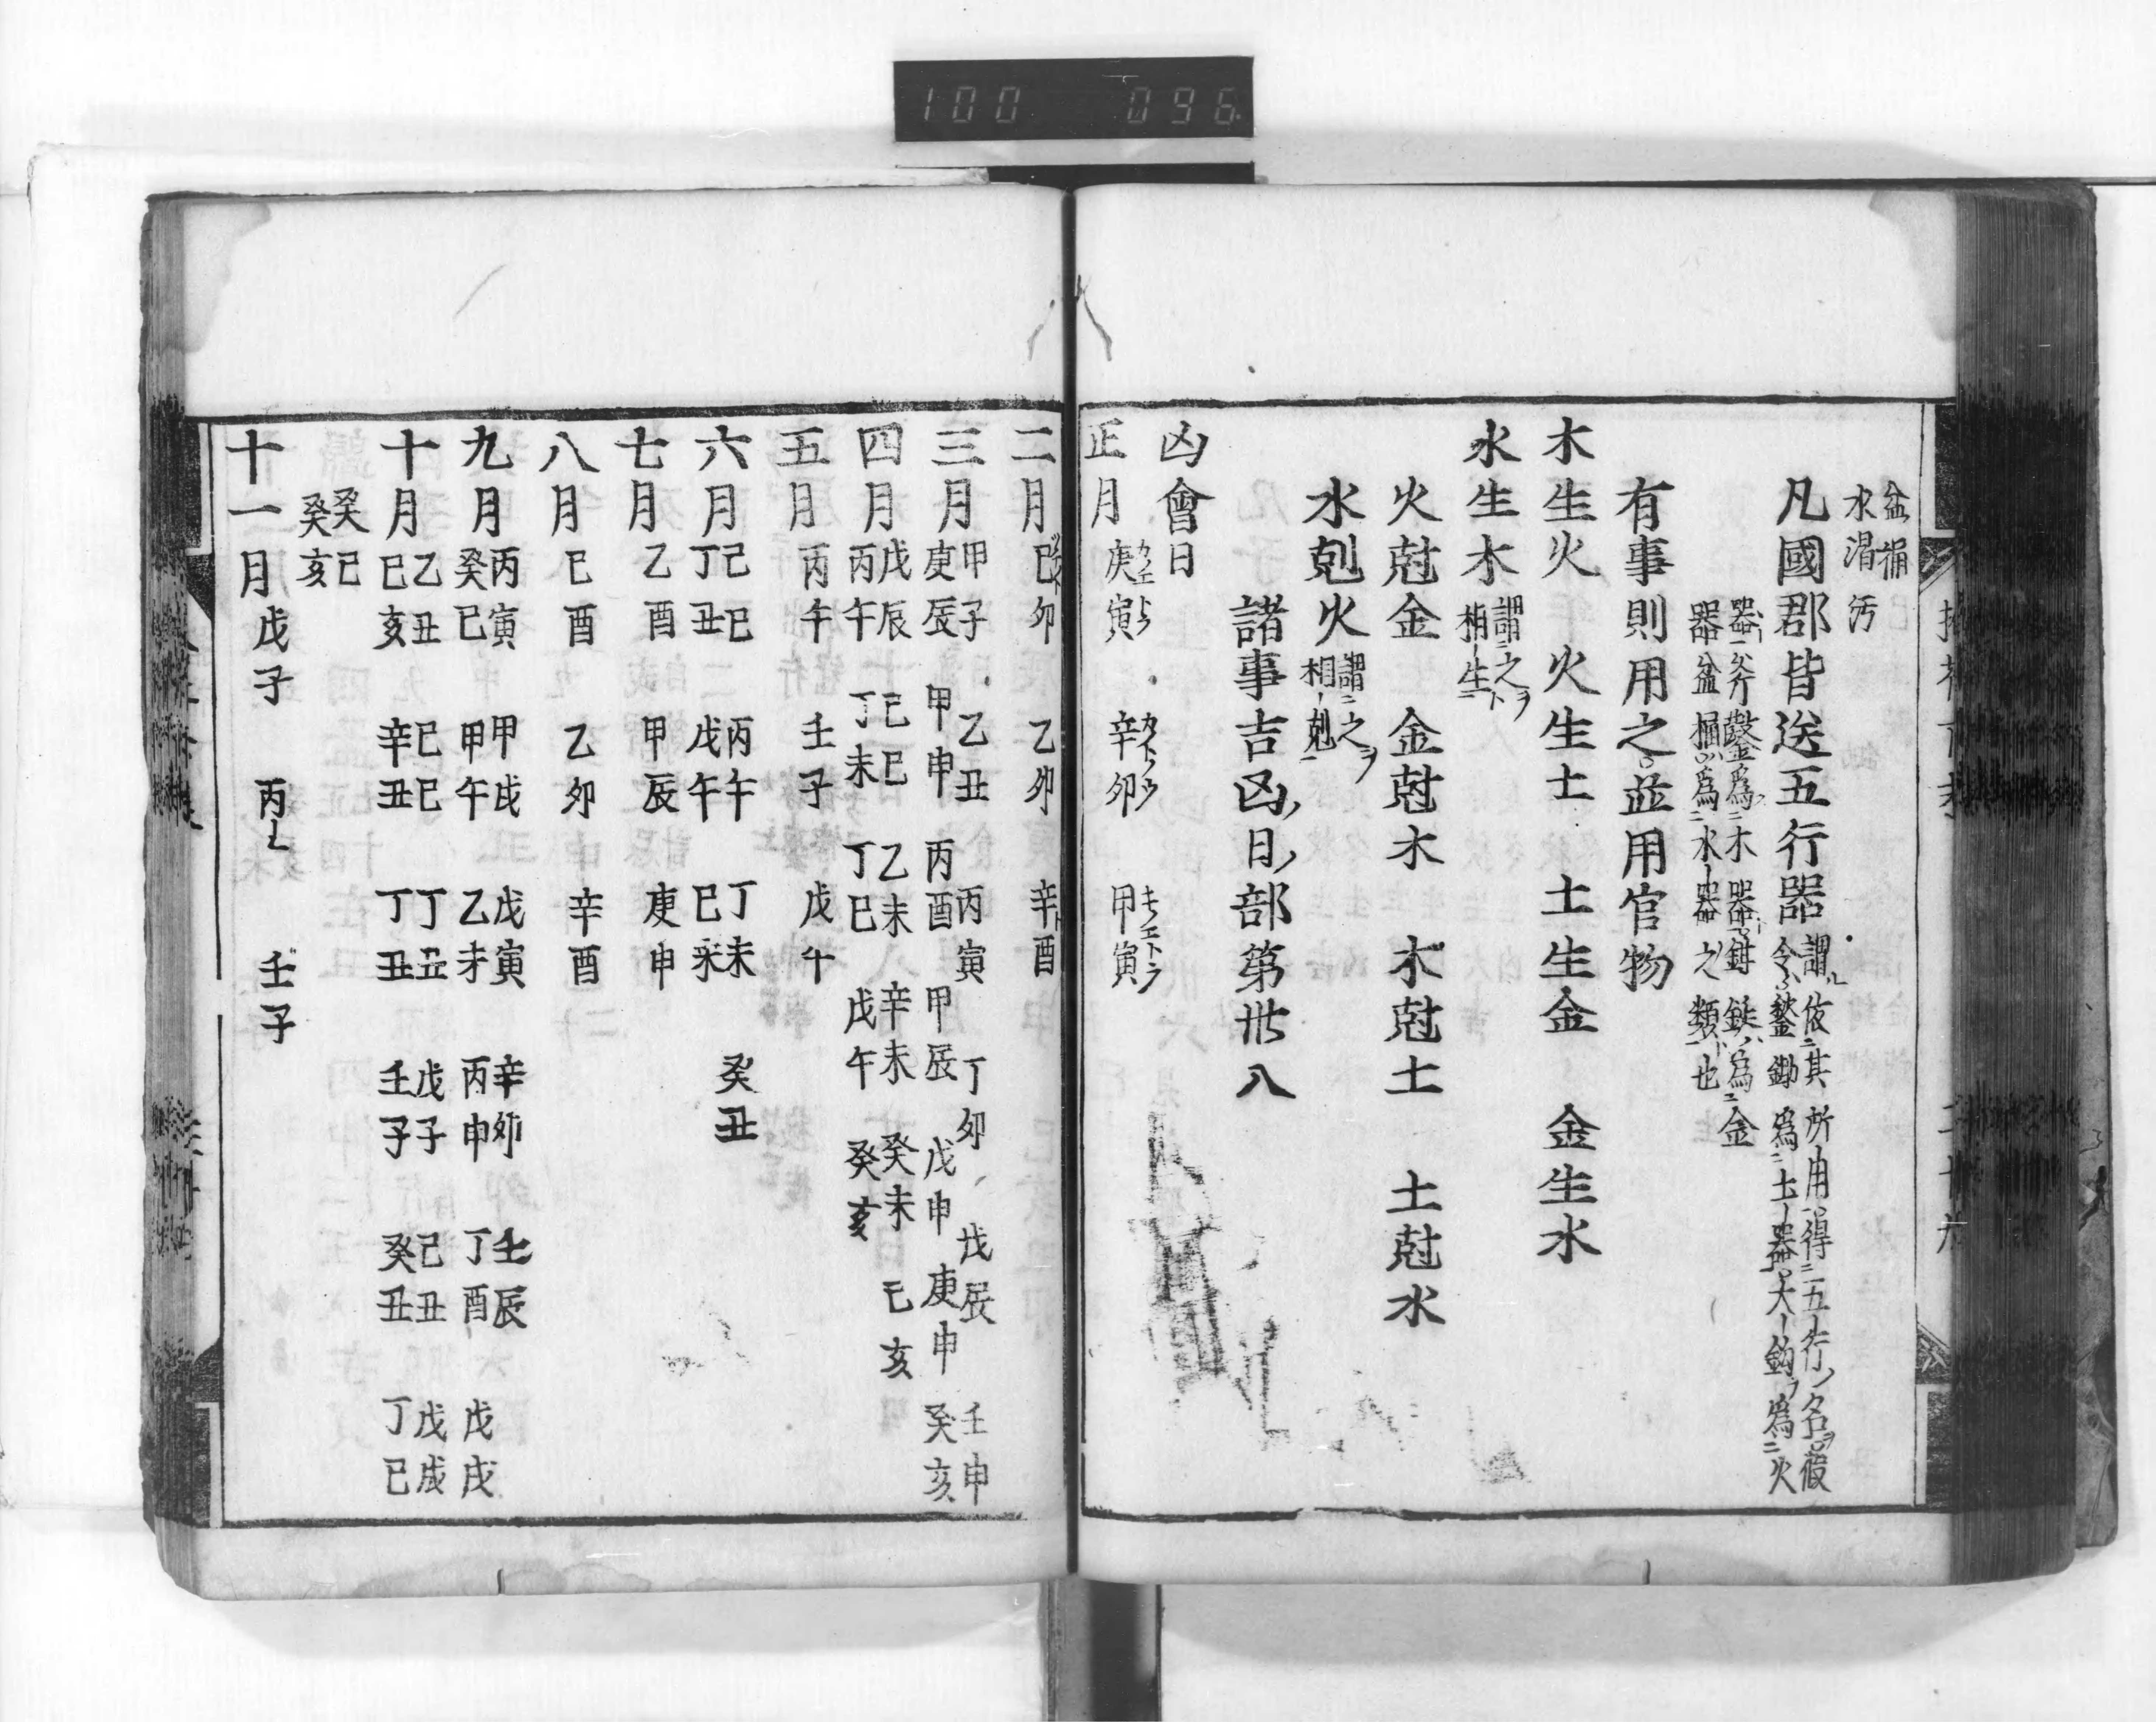 100 096
盆桶
水渭汚
凡國郡皆送五行器謂依其所用得五行名假
令鍫鋤爲土器大鈎爲火
器斧鑿爲木器鉗鉄爲金
器盆桶爲水器之類也
有事則用之並用官物
木生火 火生土 土生金 金生水
水生木謂之
相生
火尅金 金尅木 木尅土 土尅水
水剋火謂之
相剋
諸事吉凶日部第卅八
凶會日
正月庚寅 辛卯 甲寅
二月己卯 乙卯 辛酉
三月甲子 乙丑 丙寅 丁卯 戊辰 壬申
庚辰 甲申 丙酉 甲辰 戊申 庚申 癸亥
四月戊辰 己巳 乙未 辛未 癸未 乙亥
丙午 丁未 丁巳 戊午 癸亥
五月丙午 壬子 戊午
六月己巳 丙午 丁未 癸丑
丁丑 戊午 巳未
七月乙酉 甲辰 庚申
八月己酉 乙卯 辛酉
九月丙寅 甲戌 戊寅 辛卯 壬辰
癸巳 甲午 乙未 丙申 丁酉 戊戌
十月乙丑 己巳 丁丑 戊子 己丑 戊戌
己亥 辛丑 丁丑 壬子 癸丑 丁巳
癸巳
癸亥
十一月戊子 丙 壬子